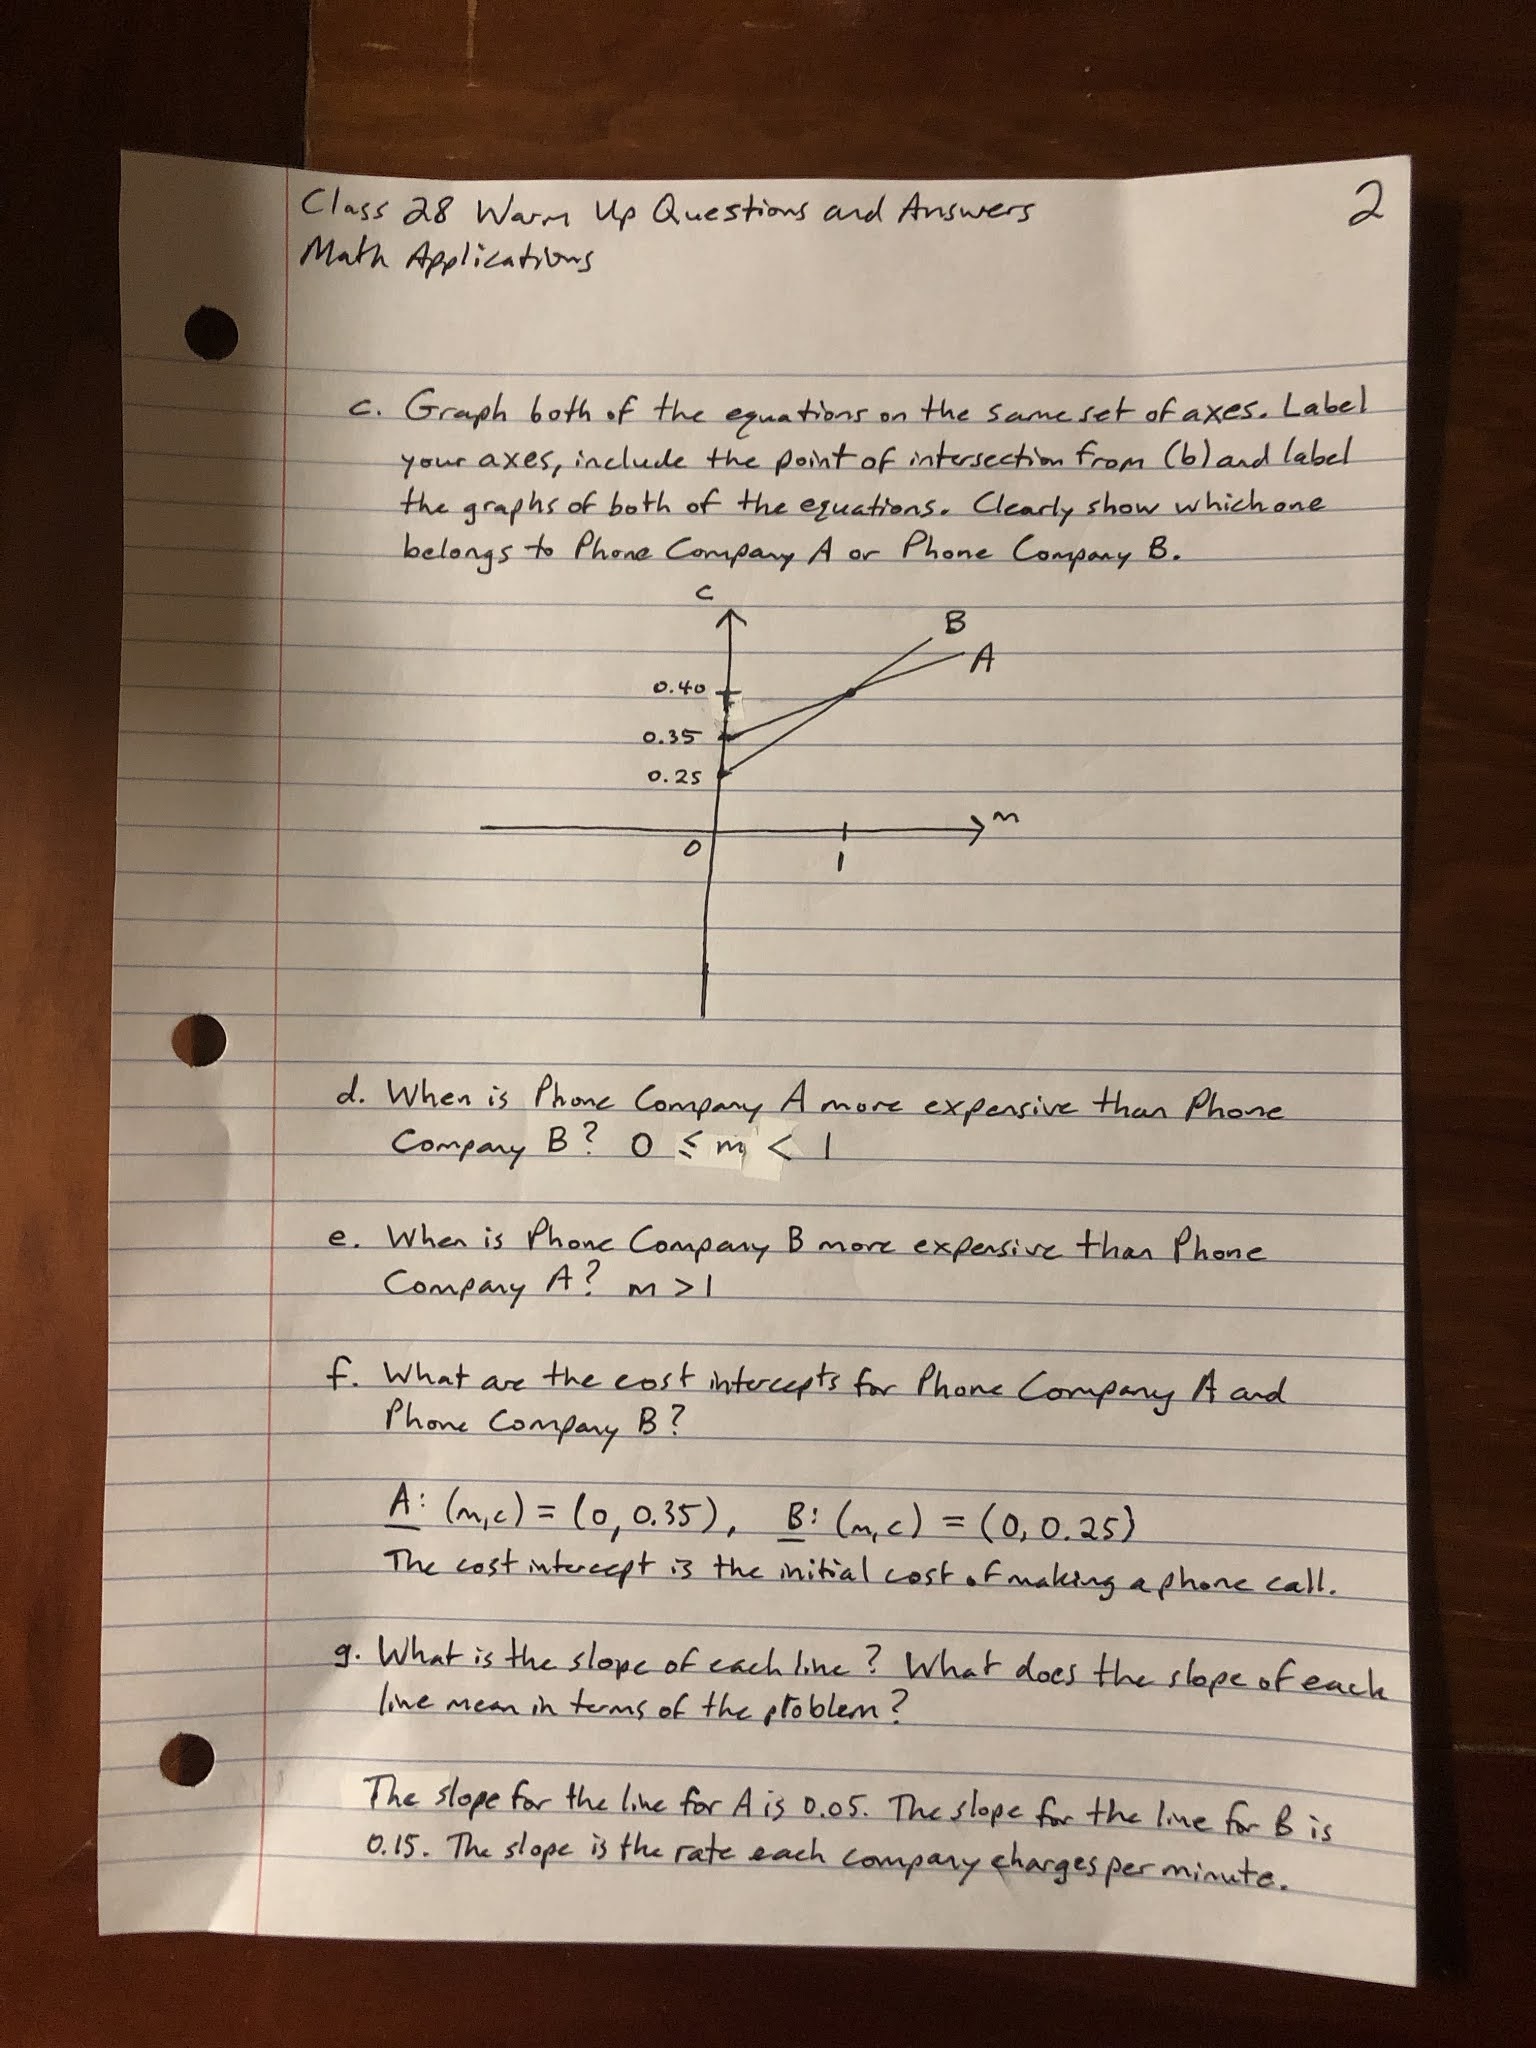 Class 28 Warm Up Questions and Answers
2
Math Applications
c. Graph both of the equations on the same set of axes. Label
your axes, include the point of intersection from (b) and label
the graphs of both of the equations. Clearly show which one
belongs to Phone Company A or Phone Company B.
c
B
A
0.40
0.35
0.25
m
0
1
d. When is Phone Company A more expensive than Phone
Company B? 0 ≤ m < 1
e. When is Phone Company B more expensive than Phone
Company A? m > 1
f. What are the cost intercepts for Phone Company A and
Phone Company B?
A: (m,c) = (0, 0.35), B: (m,c) = (0, 0.25)
The cost intercept is the initial cost of making a phone call.
g. What is the slope of each line? What does the slope of each
line mean in terms of the problem?
The slope for the line for A is 0.05. The slope for the line for B is
0.15. The slope is the rate each company charges per minute.